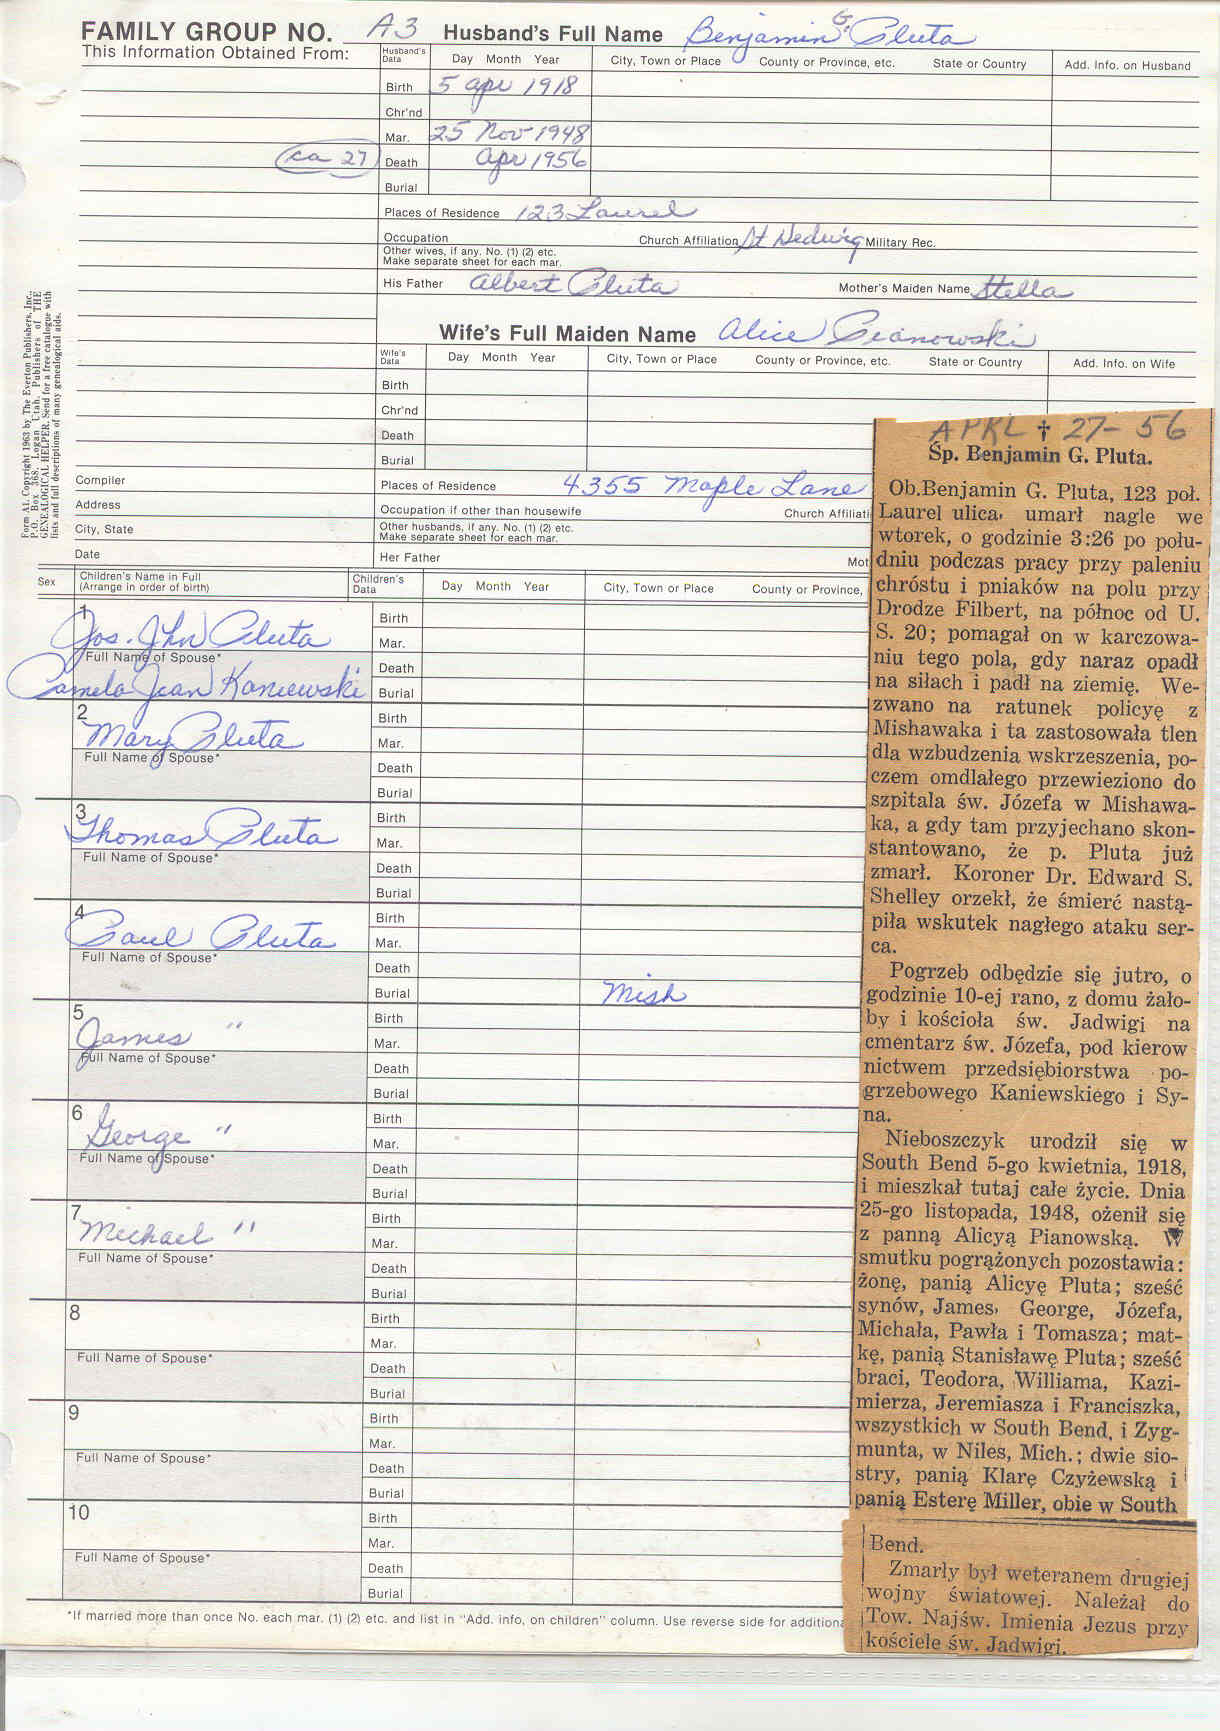 FAMILY GROUP NO. A3 Husband's Full Name Benjamin G. Pluta
This Information Obtained From:
Husband's Data Day Month Year City, Town or Place County or Province, etc. State or Country Add. Info. on Husband
Birth 5 apr 1918
Chr'nd
Mar. 25 Nov 1948
ca 27 Death apr 1956
Burial
Places of Residence 123 Laurel
Occupation Church Affiliation St Hedwig Military Rec.
Other wives, if any. No. (1) (2) etc.
Make separate sheet for each mar.
His Father Albert Pluta Mother's Maiden Name Stella
Wife's Full Maiden Name Alice Pianowski
Wife's Data Day Month Year City, Town or Place County or Province, etc. State or Country Add. Info. on Wife
Birth
Chr'nd
Death
Burial
Compiler Places of Residence 4355 Maple Lane
Address Occupation if other than housewife Church Affiliati
City, State Other husbands, if any. No. (1) (2) etc.
Make separate sheet for each mar.
Date Her Father Mot
Sex Children's Name in Full
(Arrange in order of birth) Children's Data Day Month Year City, Town or Place County or Province,
1 Jos. John Pluta Birth
Mar.
Full Name of Spouse* Death
Pamela Jean Kaniewski Burial
2 Mary Pluta Birth
Mar.
Full Name of Spouse* Death
Burial
3 Thomas Pluta Birth
Mar.
Full Name of Spouse* Death
Burial
4 Paul Pluta Birth
Mar.
Full Name of Spouse* Death
Burial Mish
5 James " Birth
Mar.
Full Name of Spouse* Death
Burial
6 George " Birth
Mar.
Full Name of Spouse* Death
Burial
7 Michael " Birth
Mar.
Full Name of Spouse* Death
Burial
8 Birth
Mar.
Full Name of Spouse* Death
Burial
9 Birth
Mar.
Full Name of Spouse* Death
Burial
10 Birth
Mar.
Full Name of Spouse* Death
Burial
*If married more than once No. each mar. (1) (2) etc. and list in "Add. info, on children" column. Use reverse side for additiona
Form A1. Copyright 1963 by The Everton Publishers, Inc.,
P.O. Box 368, Logan Utah. Publishers of THE
GENEALOGICAL HELPER. Send for a free catalogue with
lists and full descriptions of many genealogical aids.
APRL † 27-56
Śp. Benjamin G. Pluta.
Ob.Benjamin G. Pluta, 123 poł.
Laurel ulica, umarł nagle we
wtorek, o godzinie 3:26 po połu-
dniu podczas pracy przy paleniu
chróstu i pniaków na polu przy
Drodze Filbert, na północ od U.
S. 20; pomagał on w karczowa-
niu tego pola, gdy naraz opadł
na siłach i padł na ziemię. We-
zwano na ratunek policyę z
Mishawaka i ta zastosowała tlen
dla wzbudzenia wskrzeszenia, po-
czem omdlałego przewieziono do
szpitala św. Józefa w Mishawa-
ka, a gdy tam przyjechano skon-
stantowano, że p. Pluta już
zmarł. Koroner Dr. Edward S.
Shelley orzekł, że śmierć nastą-
piła wskutek nagłego ataku ser-
ca.
Pogrzeb odbędzie się jutro, o
godzinie 10-ej rano, z domu żało-
by i kościoła św. Jadwigi na
cmentarz św. Józefa, pod kierow
nictwem przedsiębiorstwa po-
grzebowego Kaniewskiego i Sy-
na.
Nieboszczyk urodził się w
South Bend 5-go kwietnia, 1918,
i mieszkał tutaj całe życie. Dnia
25-go listopada, 1948, ożenił się
z panną Alicyą Pianowską. W
smutku pogrążonych pozostawia:
żonę, panią Alicyę Pluta; sześć
synów, James, George, Józefa,
Michała, Pawła i Tomasza; mat-
kę, panią Stanisławę Pluta; sześć
braci, Teodora, Williama, Kazi-
mierza, Jeremiasza i Franciszka,
wszystkich w South Bend, i Zyg-
munta, w Niles, Mich.; dwie sio-
stry, panią Klarę Czyżewską i
panią Esterę Miller, obie w South
Bend.
Zmarly był weteranem drugiej
wojny światowej. Należał do
Tow. Najśw. Imienia Jezus przy
kościele św. Jadwigi.